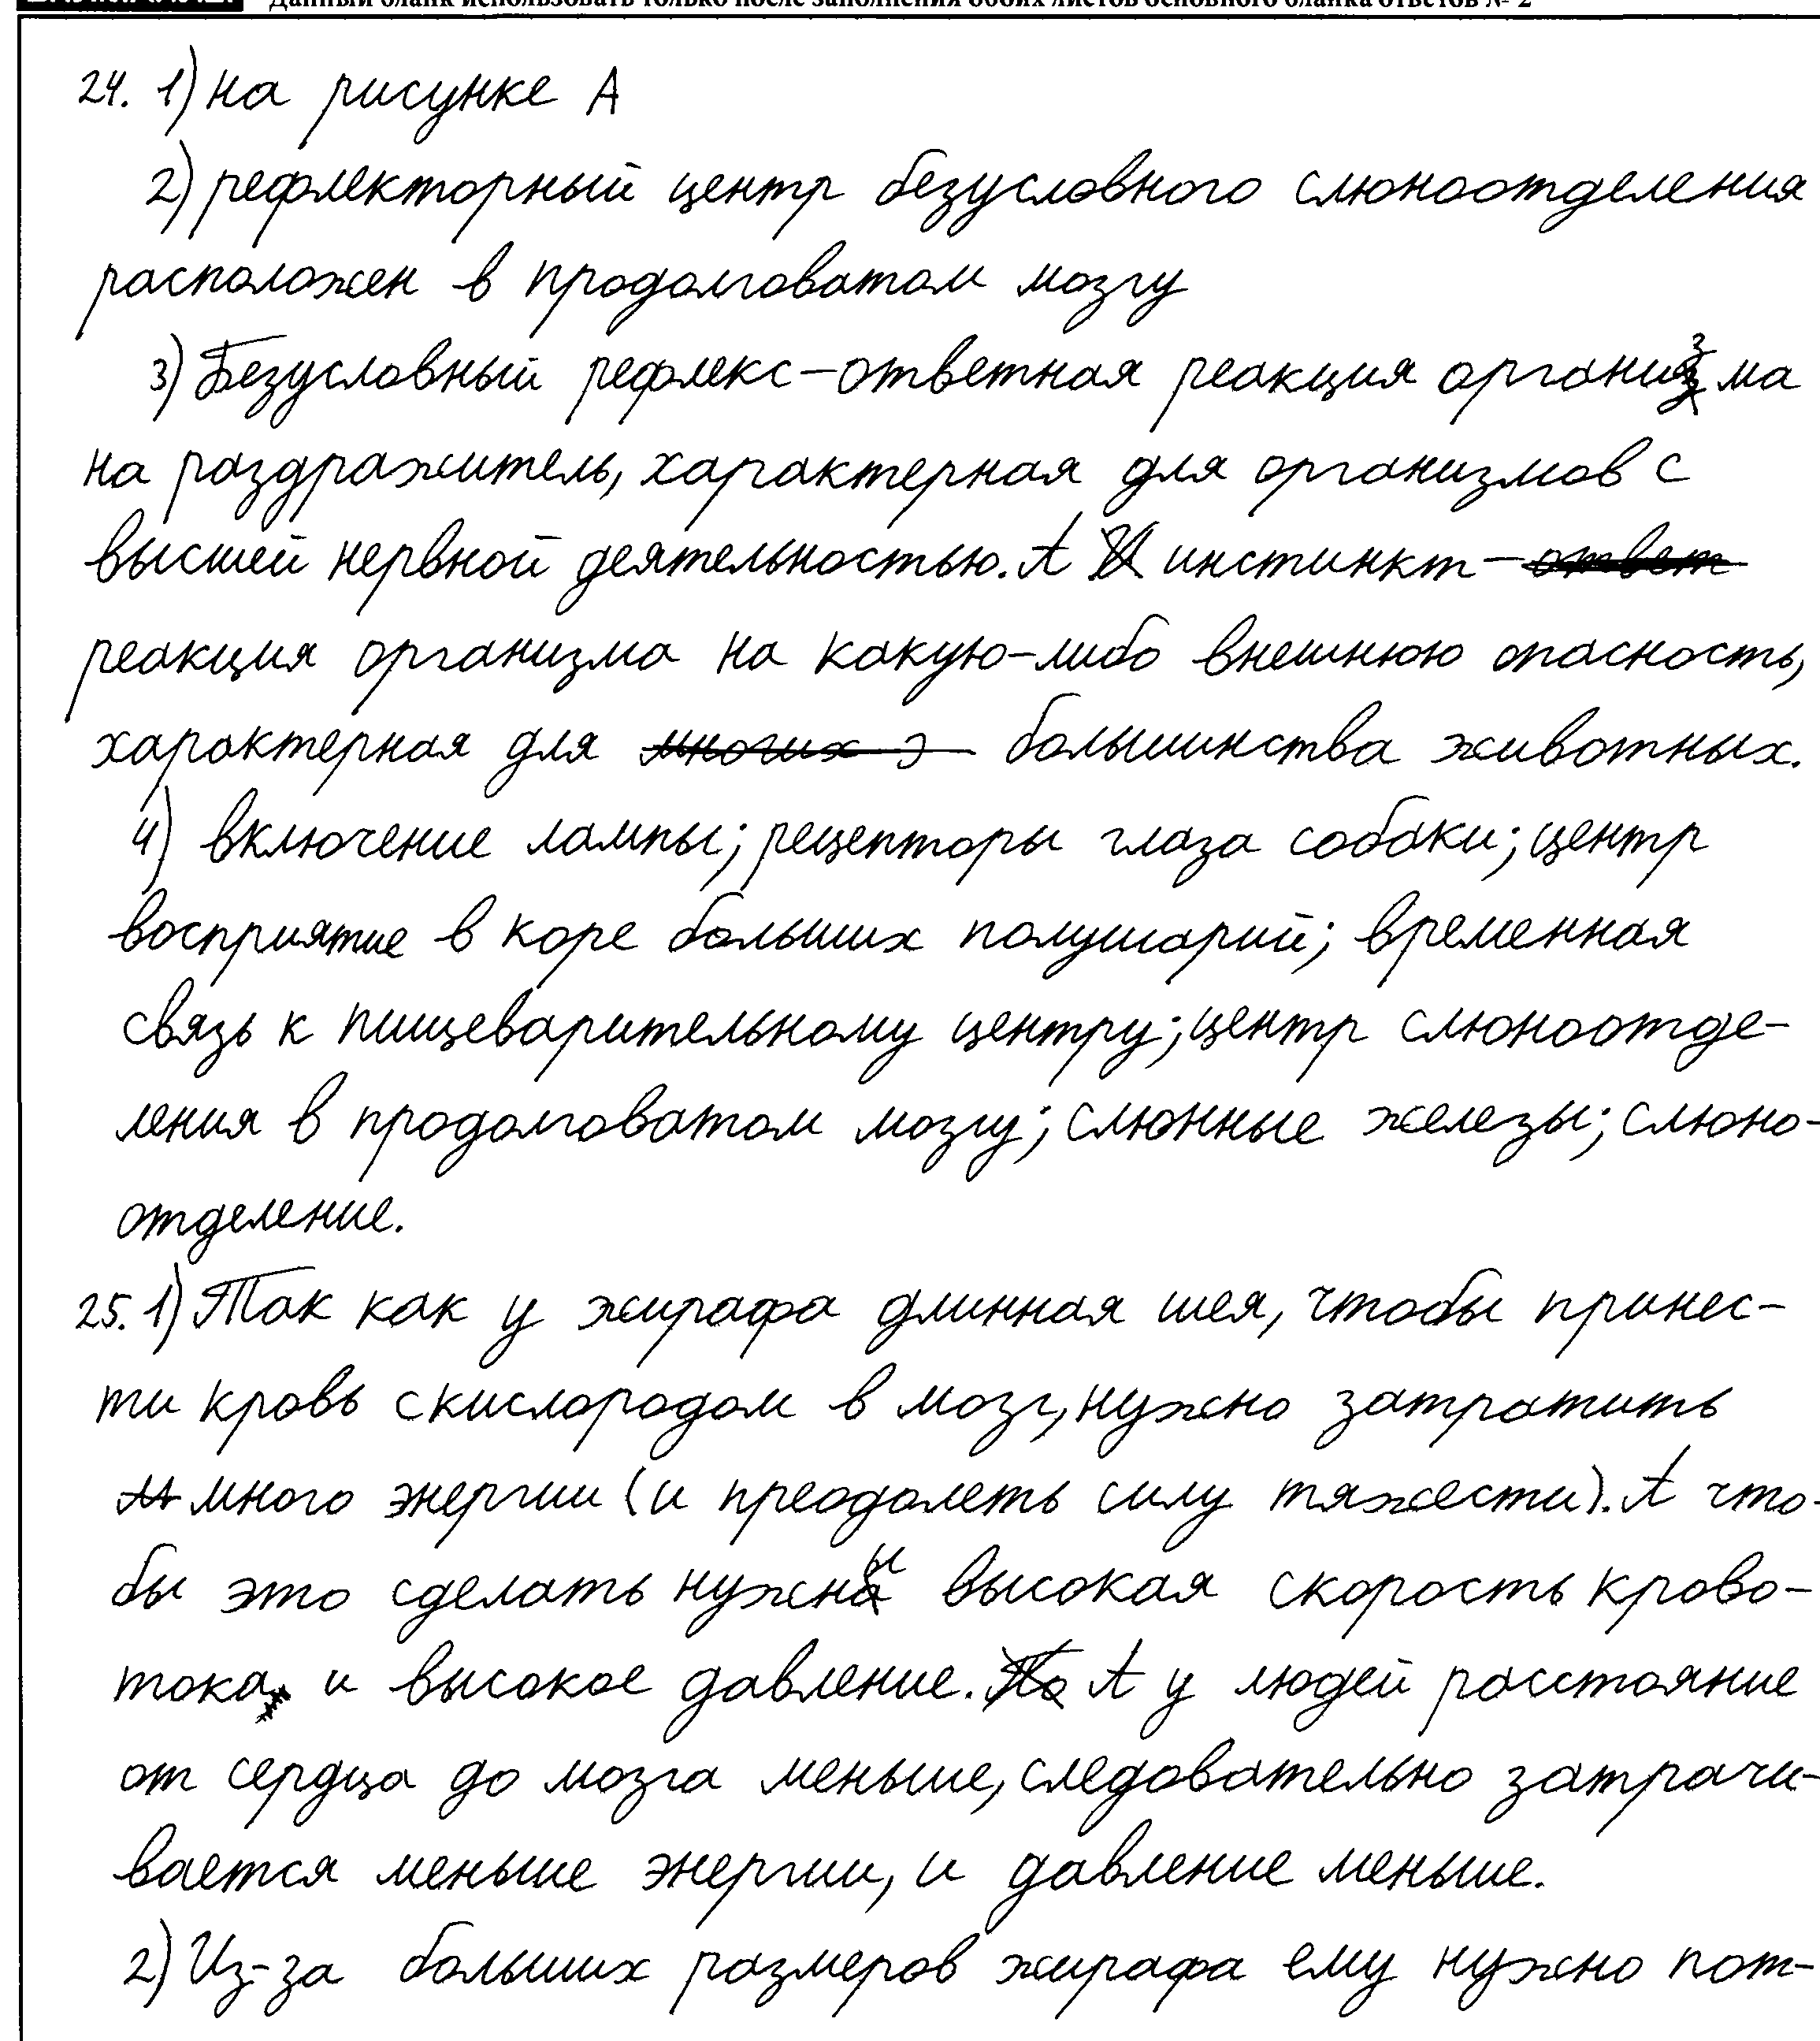 Данный бланк использовать только после заполнения обоих листов основного бланка ответов № 2
24. 1) на рисунке А
2) рефлекторный центр безусловного слюноотделения
расположен в продолговатом мозгу
3) Безусловный рефлекс – ответная реакция организма
на раздражитель, характерная для организмов с
высшей нервной деятельностью. А инстинкт – ответ
реакция организма на какую-либо внешнюю опасность,
характерная для многих э большинства животных.
4) включение лампы; рецепторы глаза собаки; центр
восприятие в коре больших полушарий; временная
связь к пищеварительному центру; центр слюноотде-
ления в продолговатом мозгу; слюнные железы; слюно-
отделение.
25. 1) Так как у жирафа длинная шея, чтобы принес-
ти кровь с кислородом в мозг, нужно затратить
много энергии (и преодолеть силу тяжести). А что-
бы это сделать нужны высокая скорость крово-
тока и высокое давление. По А у людей расстояние
от сердца до мозга меньше, следовательно затрачи-
вается меньше энергии, и давление меньше.
2) Из-за больших размеров жирафа ему нужно пот-